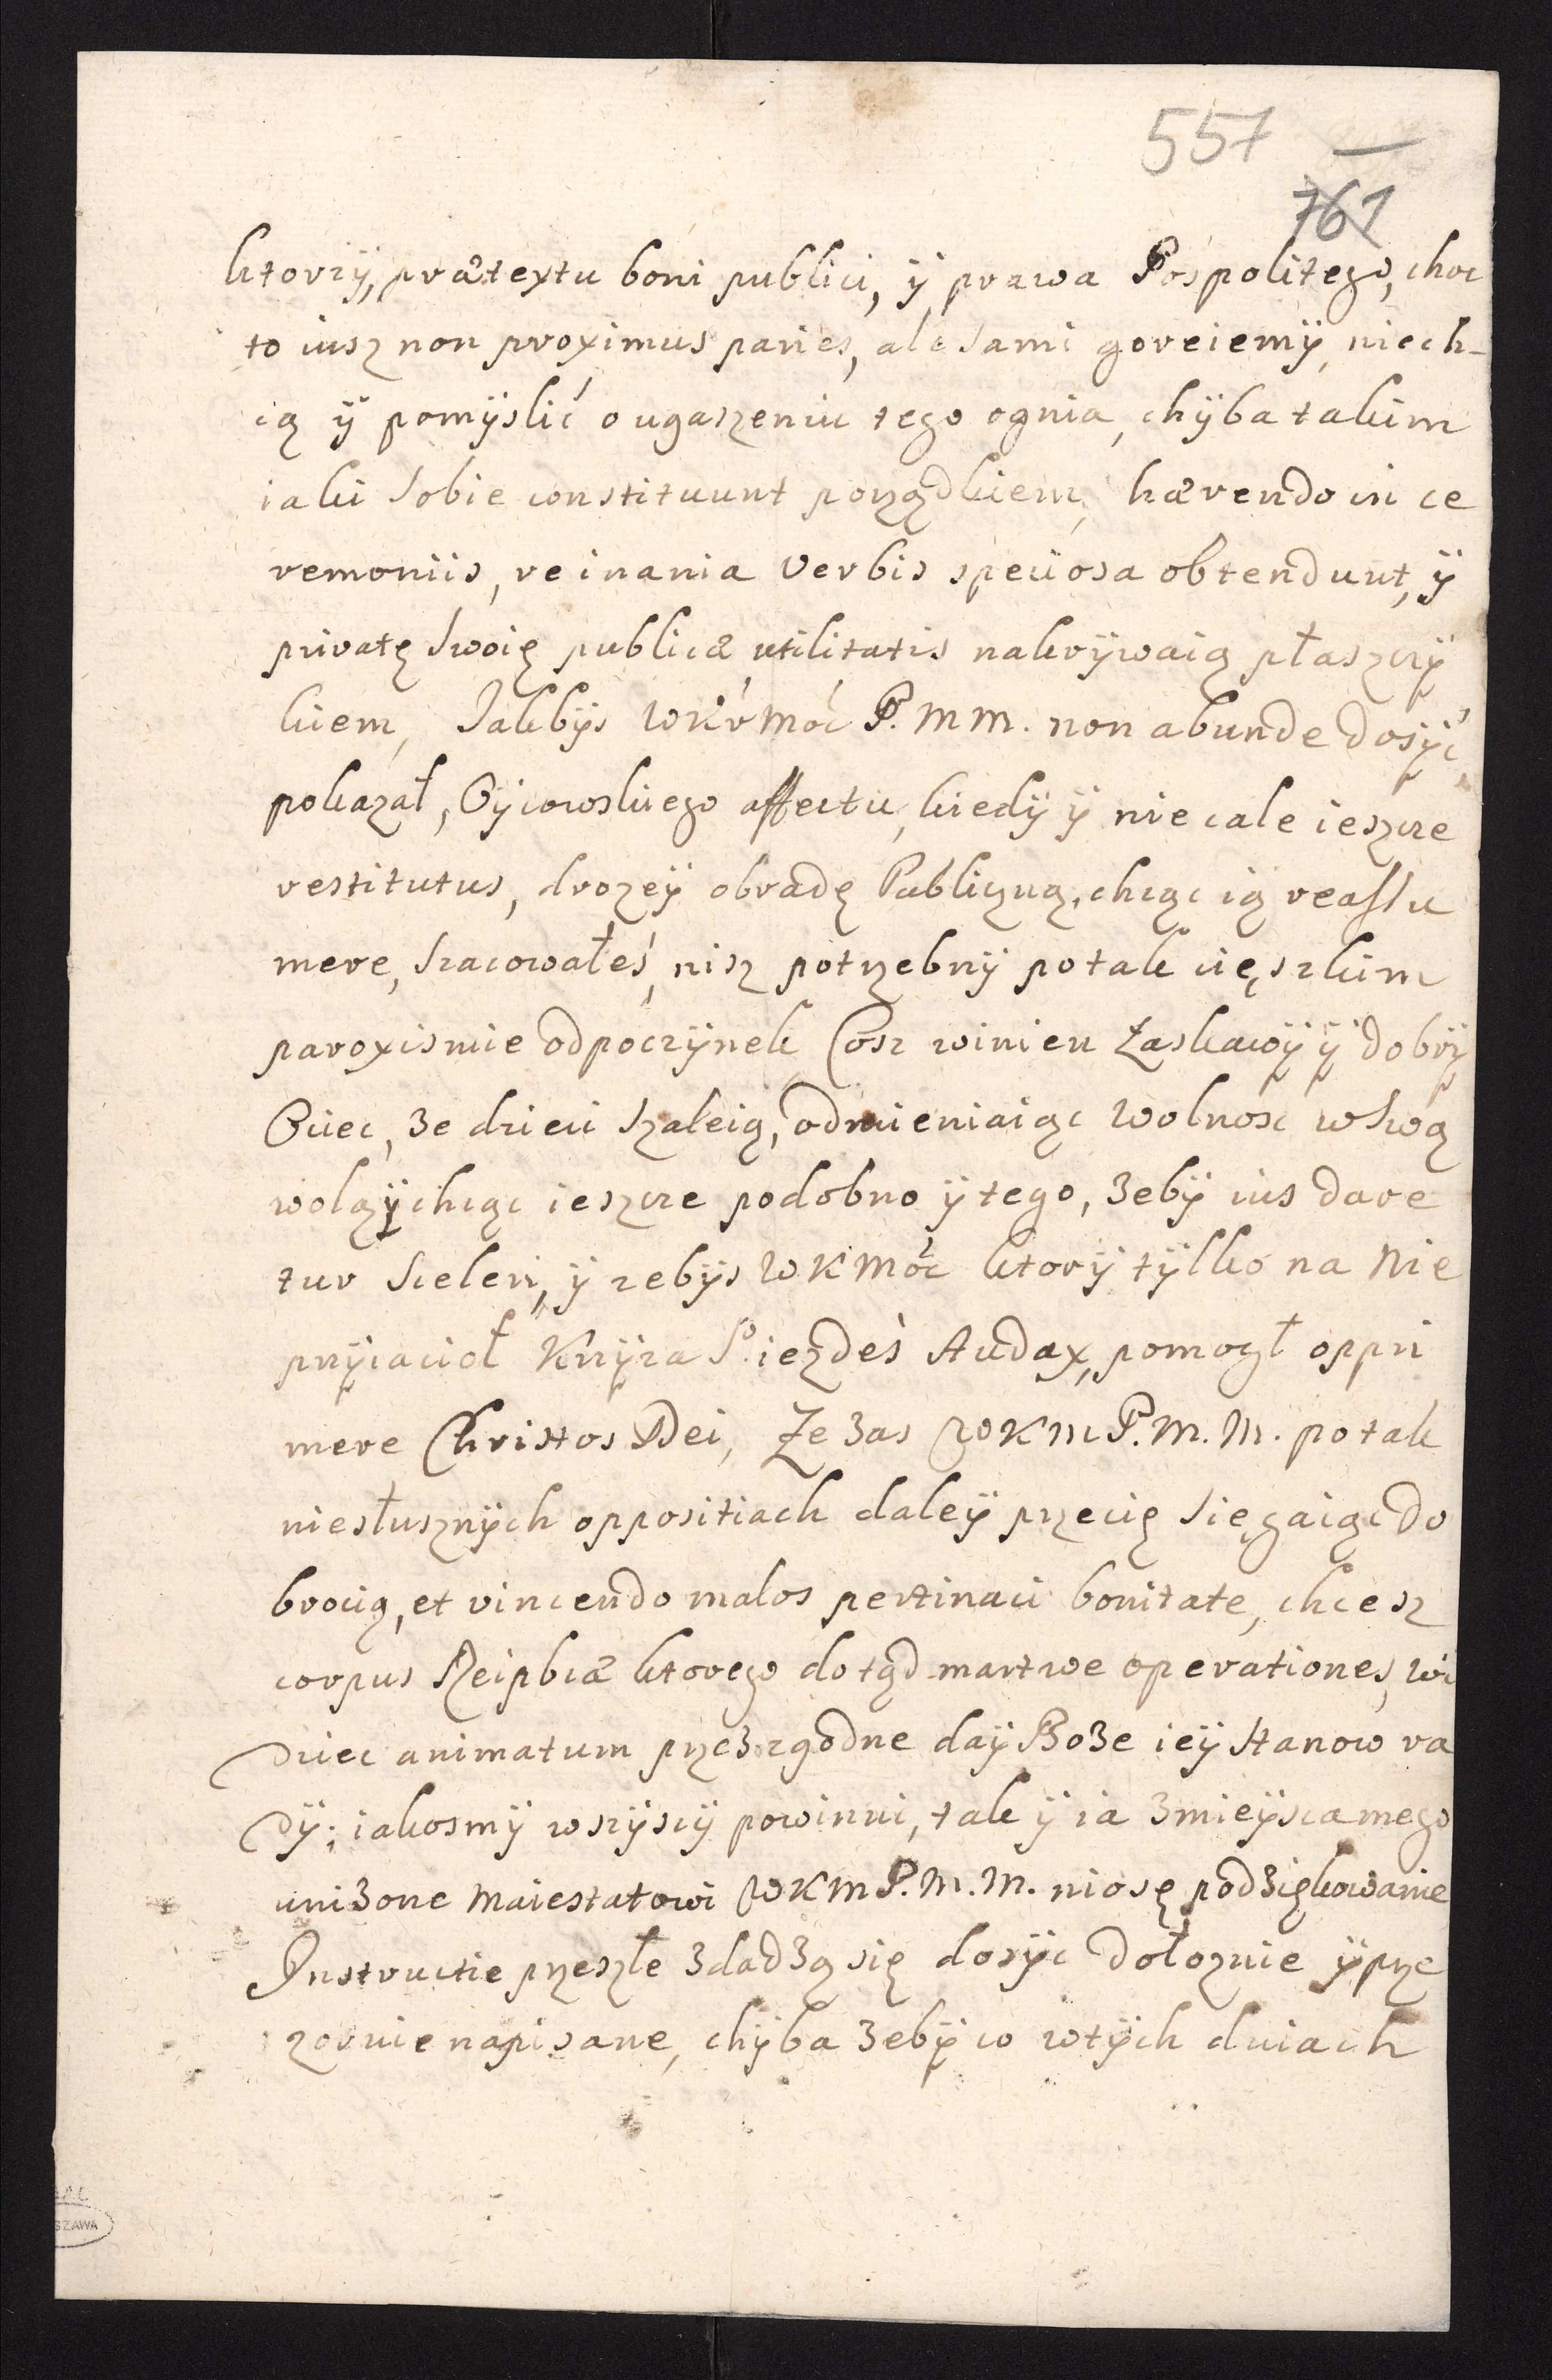 557 —
761
ktorzÿ, prætextu boni publici, ÿ prawa Pospolitego, choc
to iusz non proximus paries, ale sami goreiemÿ, niech-
cą ÿ pomÿslić o ugaszeniu tego ognia, chÿba takim
iaki sobie constituunt porządkiem, hærendo in ce
remoniis, re inania verbis speciosa obtendunt, ÿ
privatę swoię publicæ utilitatis nakrÿwaią płaszczÿ
kiem, Jakbÿs WKrMoć P. M M. non abunde dosÿć
pokazał, Oÿcowskiego affectu, kiedÿ ÿ nie cale ieszcze
restitutus, drozeÿ obradę Publiczną, chcąc ią reassu
mere, szacowałeś, nisz potrzebnÿ po tak cięszkim
paroxismie odpoczÿnek Cosz winien Łaskawÿ ÿ dobrÿ
Ociec, że dzieci szaleią, odmieniaiąc wolnosc w swą
wolą, ÿ chcąc ieszcze podobno ÿ tego, żebÿ ius dare
tur sceleri, ÿ zebÿs WKMoć ktorÿ tÿlko na Nie
przÿiacioł Krzÿza S. iezdeś Audax, pomogł oppri
mere Christos Dei, Ze zas WKM P. M. M. po tak
niesłusznÿch oppositiach daleÿ przecię sięgaiąc do
brocią, et vincendo malos pertinaci bonitate, chcesz
corpus Reipbcæ ktorego dotąd martwe operationes, wi
dziec animatum przez zgodne daÿ Boże ieÿ stanow ra
dÿ; iakosmÿ wszÿscÿ powinni, tak ÿ ia z mieÿsca mego
uniżone Maiestatowi WKM P. M. M. niosę podziękowanie
Instructie przeszłe zdadzą się dosÿc dołoznie ÿ prze
zornie napisane, chÿba żebÿ co w tÿch dniach